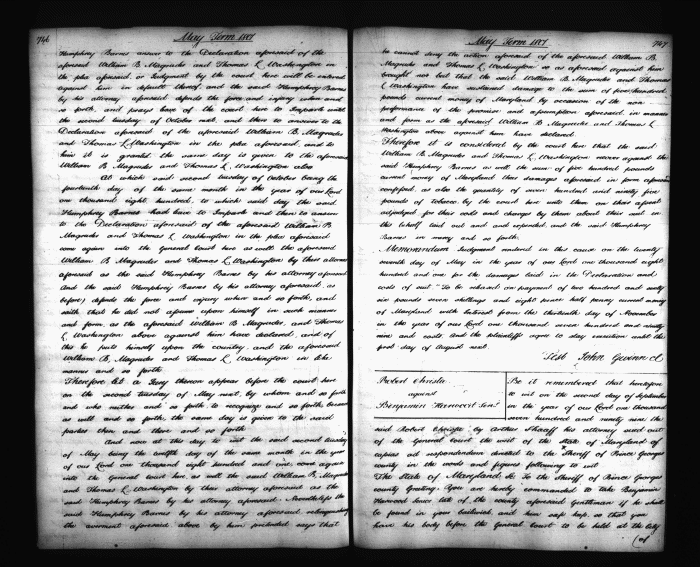 746
May Term 1801
Humphrey Barnes answer to the Declaration aforesaid of the
aforesaid William B. Magruder and Thomas L. Washington in
the plea aforesaid or Judgment by the court here will be entered
against him in default thereof, and the said Humphrey Barnes
by his attorney aforesaid defends the force and injury when and
so forth, and prays leave of the court here to Imparle until
the second tuesday of October next, and then to answer to the
Declaration aforesaid of the aforesaid William B. Magruder
and Thomas L. Washington in the plea aforesaid, and to
him it is granted the same day is given to the aforesaid
William B. Magruder and Thomas L. Washington also
At which said second tuesday of October being the
fourteenth day of the same month in the year of our Lord
one thousand eight hundred, to which said day the said
Humphrey Barnes had leave to Imparle and then to answer
to the Declaration aforesaid of the aforesaid William B.
Magruder and Thomas L. Washington in the plea aforesaid
come again into the General Court here as well the aforesaid
William B. Magruder and Thomas L. Washington by their attorney
aforesaid as the said Humphrey Barnes by his attorney aforesaid
And the said Humphrey Barnes by his attorney aforesaid, as
before, defends the force and injury when and so forth, and
saith that he did not assume upon himself in such manner
and form, as the aforesaid William B. Magruder, and Thomas
L. Washington above against him have declared, and of
this he puts himself upon the country, and the aforesaid
William B. Magruder and Thomas L. Washington in like
manner and so forth
Therefore let a Jury thereon appear before the court here
on the second tuesday of May next, by whom and so forth
and who neither and so forth to recognize and so forth, because
as well and so forth, the same day is given to the said
parties then and there and so forth
And now at this day to wit the said second tuesday
of May being the twelfth day of the same month in the year
of our Lord one thousand eight hundred and one, come again
into the General Court here as well the said William B. Magruder
and Thomas L. Washington by their attorney aforesaid as the
said Humphrey Barnes by his attorney aforesaid. Nevertheless the
said Humphrey Barnes by his attorney aforesaid, relinquishing
the averment aforesaid above by him pretended says that
May Term 1801
747
he cannot deny the action aforesaid of the aforesaid William B.
Magruder and Thomas L. Washington so as aforesaid against him
brought nor but that the said William B. Magruder and Thomas
L Washington have sustained damage to the sum of five hundred
pounds current money of Maryland by occasion of the non
performance of the promises and assumptions aforesaid, in manner
and form as the aforesaid William B. Magruder and Thomas L.
Washington above against him have declared
Therefore it is considered by the court here that the said
William B. Magruder and Thomas L. Washington recover against the
said Humphrey Barnes as well the sum of five hundred pounds
current money of Maryland their damages aforesaid in form aforesaid
confessed, as also the quantity of seven hundred and ninety five
pounds of tobacco by the court here unto them on their assent
adjudged for their costs and charges by them about their suit in
this behalf laid out and and expended, and the said Humphrey
Barnes in mercy and so forth
Memorandum Judgment entered in this cause on the twenty
seventh day of May in the year of our Lord one thousand eight
hundred and one for the damages laid in the Declaration and
costs of suit "To be released on payment of two hundred and sixty
six pounds seven shillings and eight pence half penny current money
of Maryland with interest from the thirteenth day of November
in the year of our Lord one thousand seven hundred and ninety
nine and costs, and the plaintiffs agree to stay execution until the
first day of August next
Test John Gwinn Cl
Robert Christie
against
Benjamin Harwood Senr.
Be it remembered that heretofore
to wit on the second day of September
in the year of our Lord one thousand
seven hundred and ninety nine the
said Robert Christie by Arthur Shaaff his attorney sued out
of the General Court the writ of the state of Maryland of
capias ad respondendum directed to the Sheriff of Prince Georges
county in the words and figures following to wit
The State of Maryland Sc To the Sheriff of Prince Georges
county Greeting You are hereby commanded to take Benjamin
Harwood Senr. late of the county aforesaid Gentleman if he shall
be found in your bailiwick and him safe keep so that you
have his body before the General Court to be held at the City
of